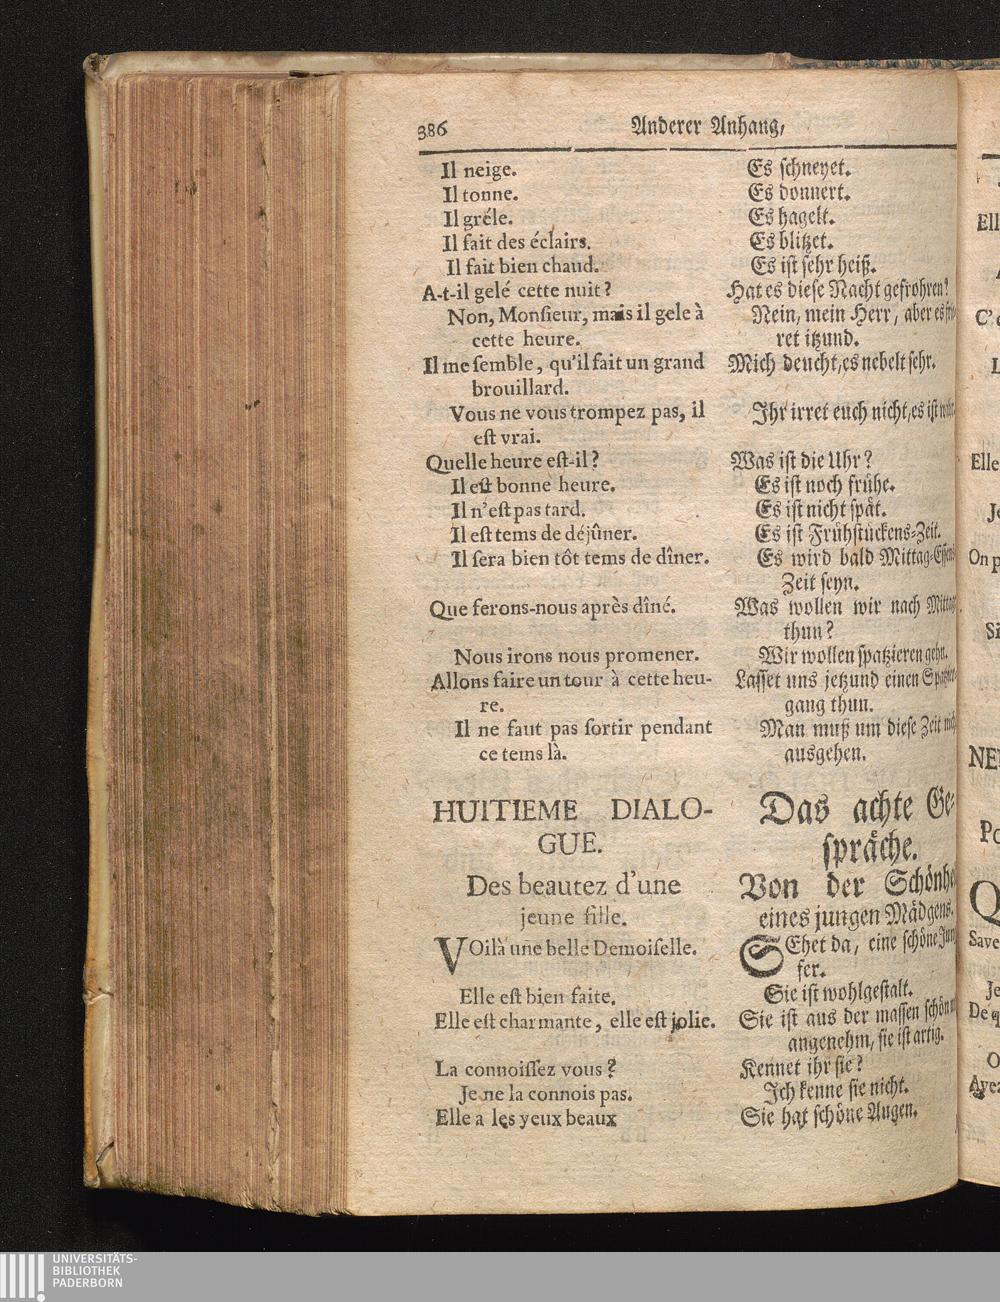 386 Anderer Anhang,
Il neige.
Il tonne.
Il gréle.
Il fait des éclairs.
Il fait bien chaud.
A-t-il gelé cette nuit?
Non, Monſieur, mais il gele à
cette heure.
Il me ſemble, qu'il fait un grand
brouillard.
Vous ne vous trompez pas, il
eſt vrai.
Quelle heure eſt-il?
Il eſt bonne heure.
Il n'eſt pas tard.
Il eſt tems de déjûner.
Il ſera bien tôt tems de dîner.
Que ferons-nous après dîné.
Nous irons nous promener.
Allons faire un tour à cette heu-
re.
Il ne faut pas ſortir pendant
ce tems là.
HUITIEME DIALO-
GUE.
Des beautez d'une
jeune fille.
VOilà une belle Demoiſelle.
Elle eſt bien faite.
Elle eſt charmante, elle eſt jolie.
La connoiſſez vous?
Je ne la connois pas.
Elle a les yeux beaux
Es ſchneyet.
Es donnert.
Es hagelt.
Es blitzet.
Es iſt ſehr heiß.
Hat es dieſe Nacht gefrohren?
Nein, mein Herr, aber es
ret itzund.
Mich deucht, es nebelt ſehr.
Ihr irret euch nicht, es iſt
Was iſt die Uhr?
Es iſt noch frühe.
Es iſt nicht ſpät.
Es iſt Frühſtückens-Zeit.
Es wird bald Mittag-Eſſens
Zeit ſeyn.
Was wollen wir nach Mittag
thun?
Wir wollen ſpatzieren gehn.
Laſſet uns jetzund einen Spatzier-
gang thun.
Man muß um dieſe Zeit
ausgehen.
Das achte Ge-
ſpräche.
Von der
eines jungen Mädgens.
SEhet da, eine ſchöne Jun
fer.
Sie iſt wohlgeſtalt.
Sie iſt aus der maſſen
angenehm, ſie iſt artig.
Kennet ihr ſie?
Ich kenne ſie nicht.
Sie hat ſchöne Augen.
Ell
C'
L
Elle
Je
On p
Si
NE
Po
Q
Save
Je
De q
O
Avez
UNIVERSITÄTS-
BIBLIOTHEK
PADERBORN